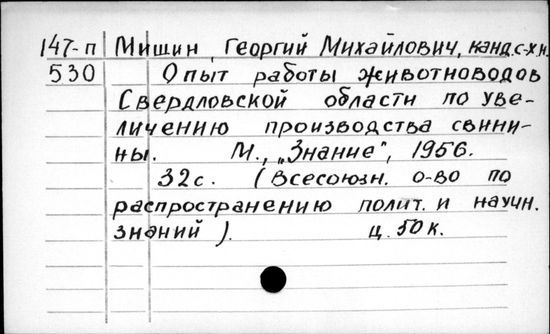 147-п Мишин, Георгий Михайлович, канд.с-х.н.
530 Опыт работы животноводов
Свердловской области по уве-
личению производства свини-
ны. М., „Знание", 1956.
32с. (Всесоюзн. о-во по
распространению полит. и научн.
знаний). ц. 50к.